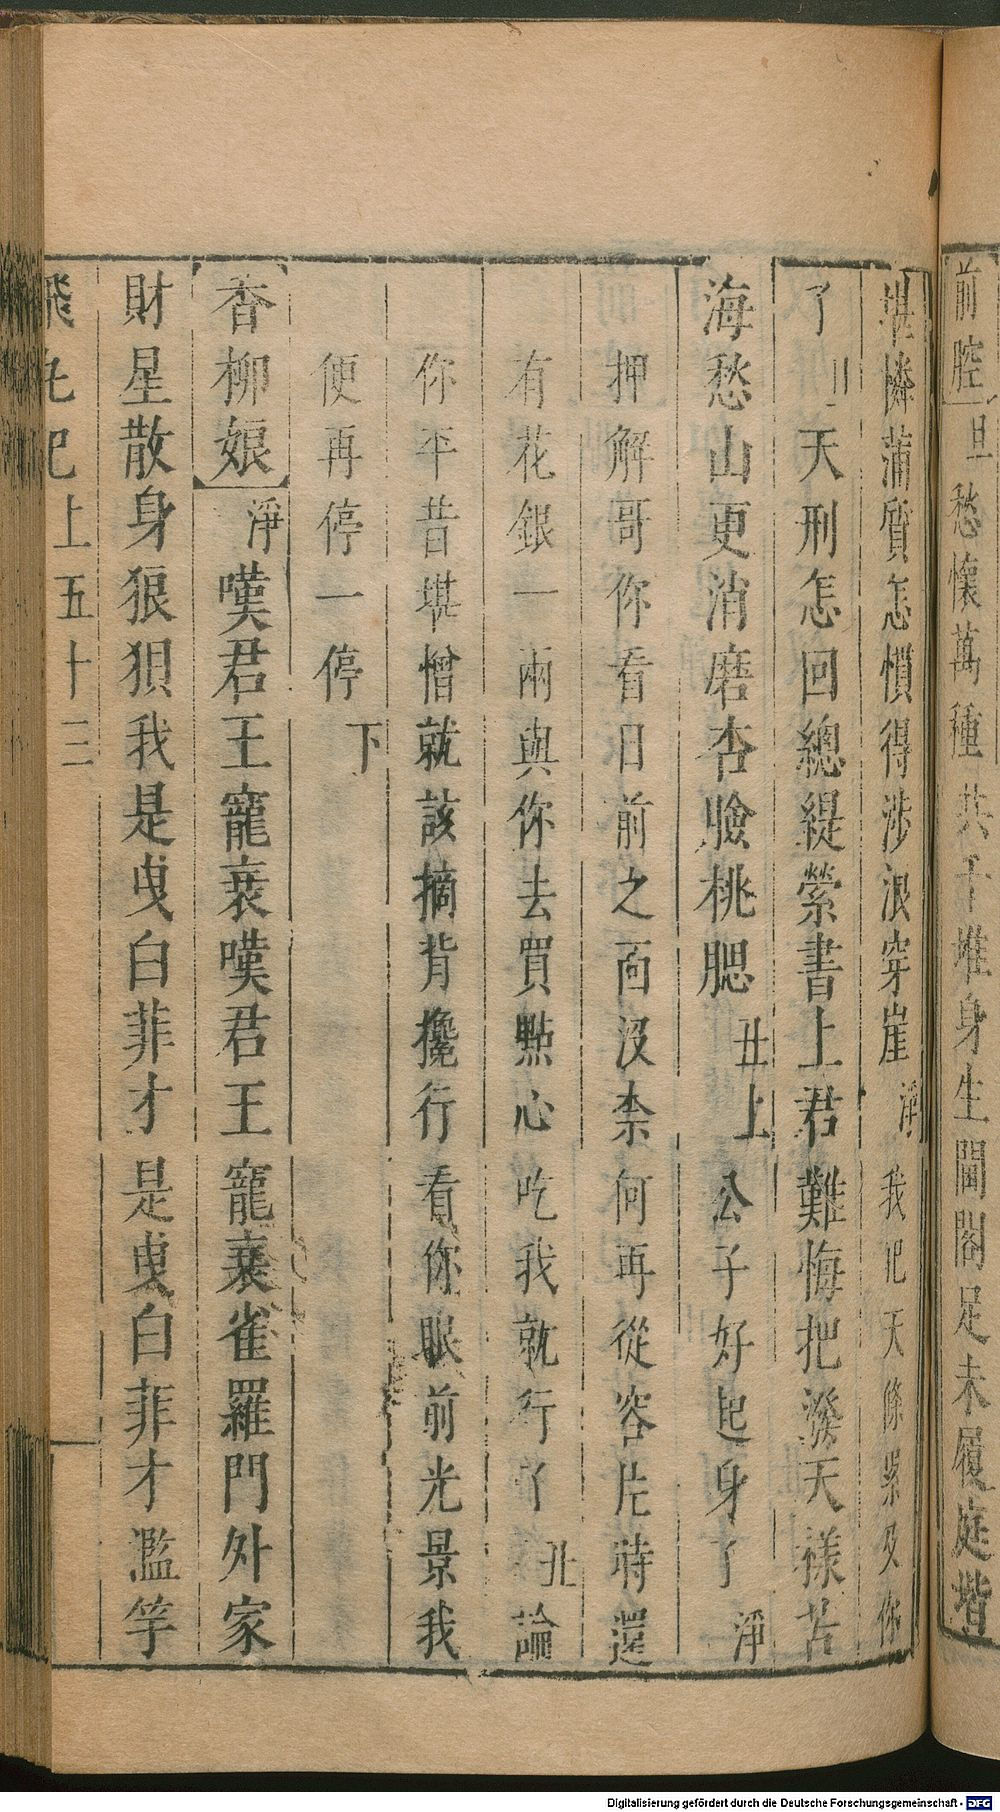 前腔旦愁懷萬種共千堆身生閨閣足未履庭堦
堪憐蒲質怎慣得涉浪穿崖淨我把天條累及你
了旦天刑怎回總緹縈書上君難悔把潑天樣苦
海愁山更消磨杏臉桃腮丑上公子好起身了淨
押解哥你看日前之面没柰何再從容片時還
有花銀一兩與你去買點心吃我就行了丑論
你平昔堪憎就該摘背攙行看你眼前光景我
便再停一停下
香柳娘淨嘆君王寵衰嘆君王寵衰雀羅門外家
財星散身狼狽我是曳白菲才是曳白菲才濫竽
飛丸記上五十三
Digitalisierung gefördert durch die Deutsche Forschungsgemeinschaft - DFG